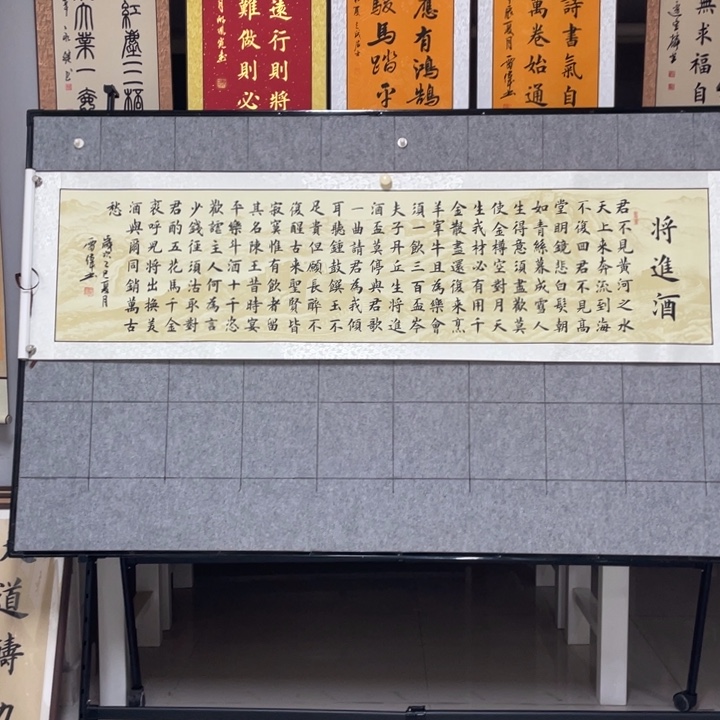 紅塵三
業一
遠行則將
難做則必
應有鴻鵠
馬踏平
詩書氣自
萬卷始通
無求福自
将進酒
君不見黃河之水
天上來奔流到海
不復回君不見高
堂明鏡悲白髮朝
如青絲暮成雪人
生得意須盡歡莫
使金樽空對月天
生我材必有用千
金散盡還復來烹
羊宰牛且為樂會
須一飲三百盃岑
夫子丹丘生將進
酒盃莫停與君歌
一曲請君為我傾
耳聽鍾鼓饌玉不
足貴但願長醉不
復醒古來聖賢皆
寂寞惟有飲者留
其名陳王昔時宴
平樂斗酒十千恣
歡謔主人何為言
少錢徑須沽取對
君酌五花馬千金
裘呼兒將出換美
酒與爾同銷萬古
愁
歲次乙巳夏月
道